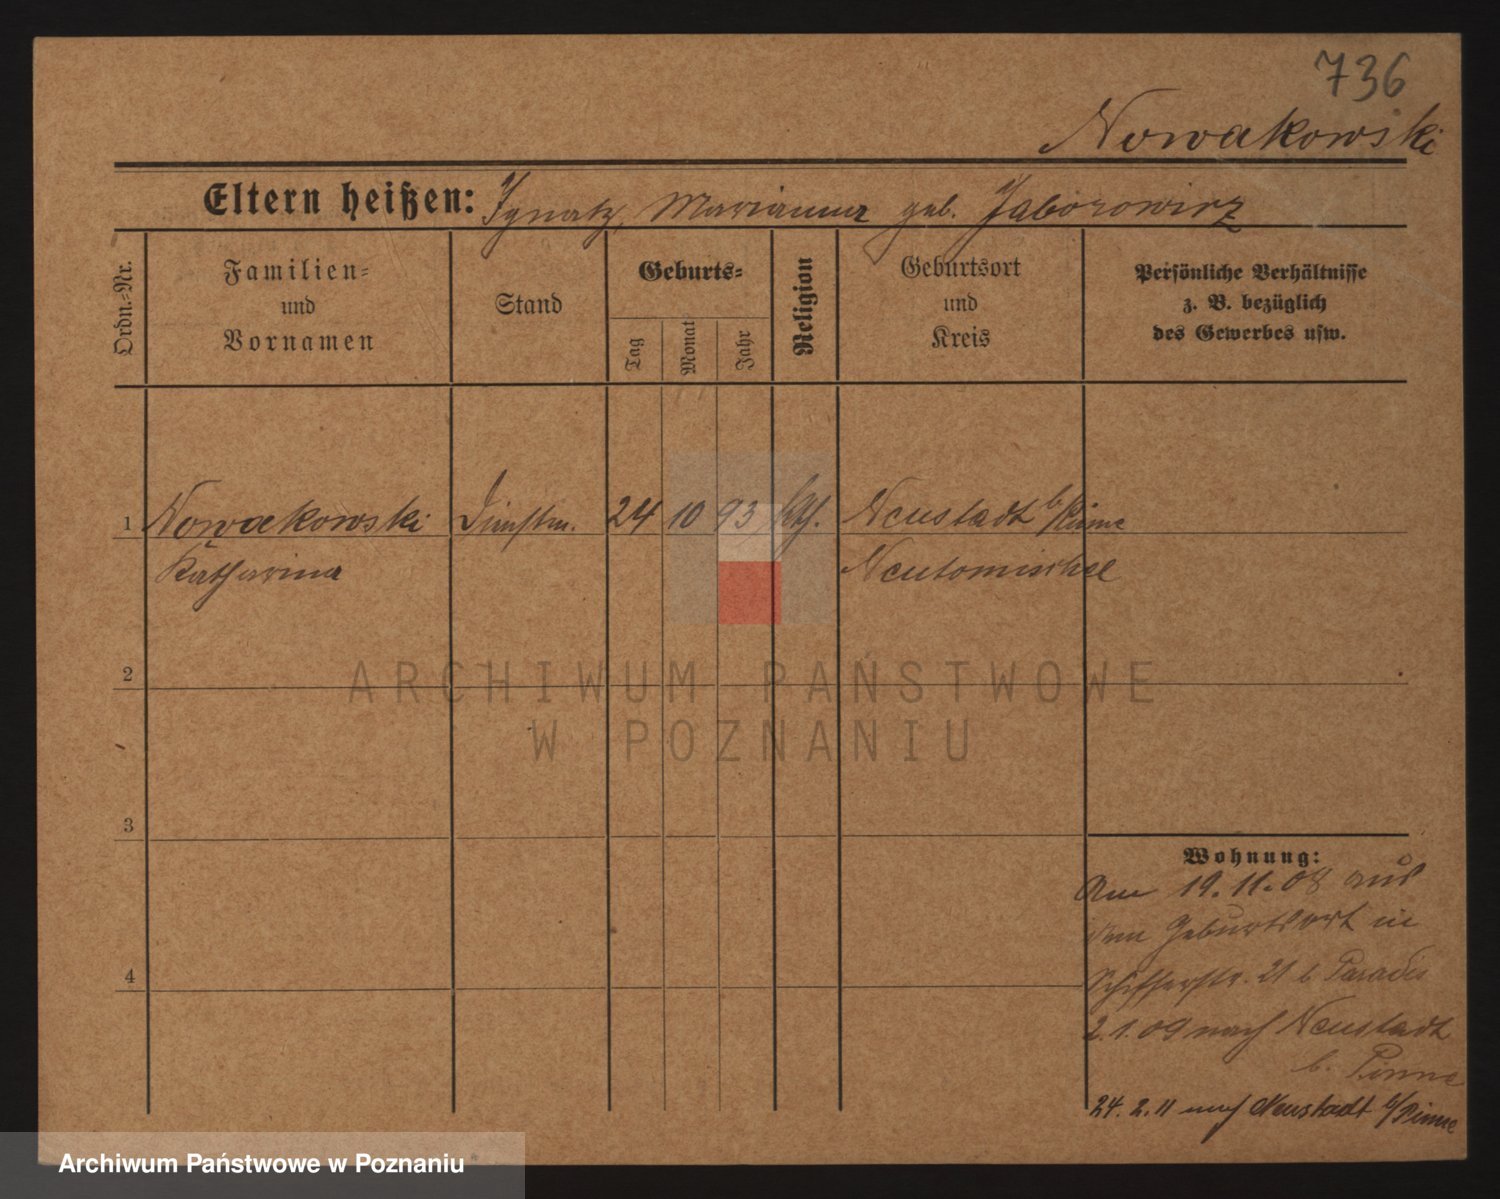 736
Nowakowski
Eltern heißen: Ignatz, Marianna geb. Jaborowicz
Ordn.-Nr.
Familien-
und
Vornamen
Stand
Geburts-
Tag
Monat
Jahr
Religion
Geburtsort
und
Kreis
Persönliche Verhältnisse
z. B. bezüglich
des Gewerbes usw.
1 Nowakowski Dienstm. 24 10 93 kth. Neustadt b/Pinne
Katharina Neutomischel
2
3
4
Wohnung:
Am 19.11.08 aus
dem Geburtsort in
Schifferstr. 21 b Paradis
2.1.09 nach Neustadt
b. Pinne
24.2.11 nach Neustadt b/Pinne
ARCHIWUM PAŃSTWOWE
W POZNANIU
Archiwum Państwowe w Poznaniu